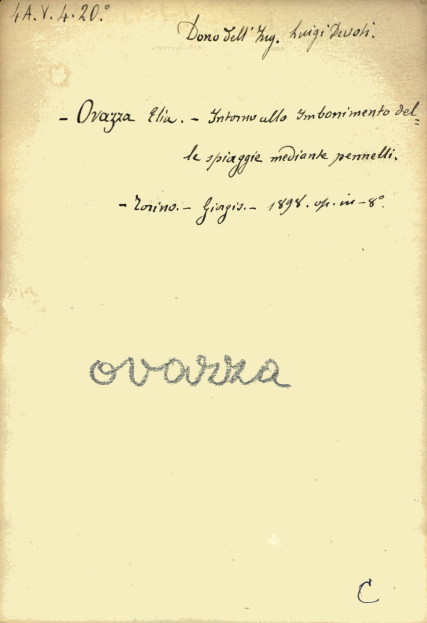 4A.V.4.20.°
Dono dell'Ing. Luigi Devoti.
- Ovazza Elia. - Intorno allo Imbonimento del=
le spiaggie mediante pennelli.
- Torino. - Giorgis. - 1898. op. in-8°.
ovazza
C